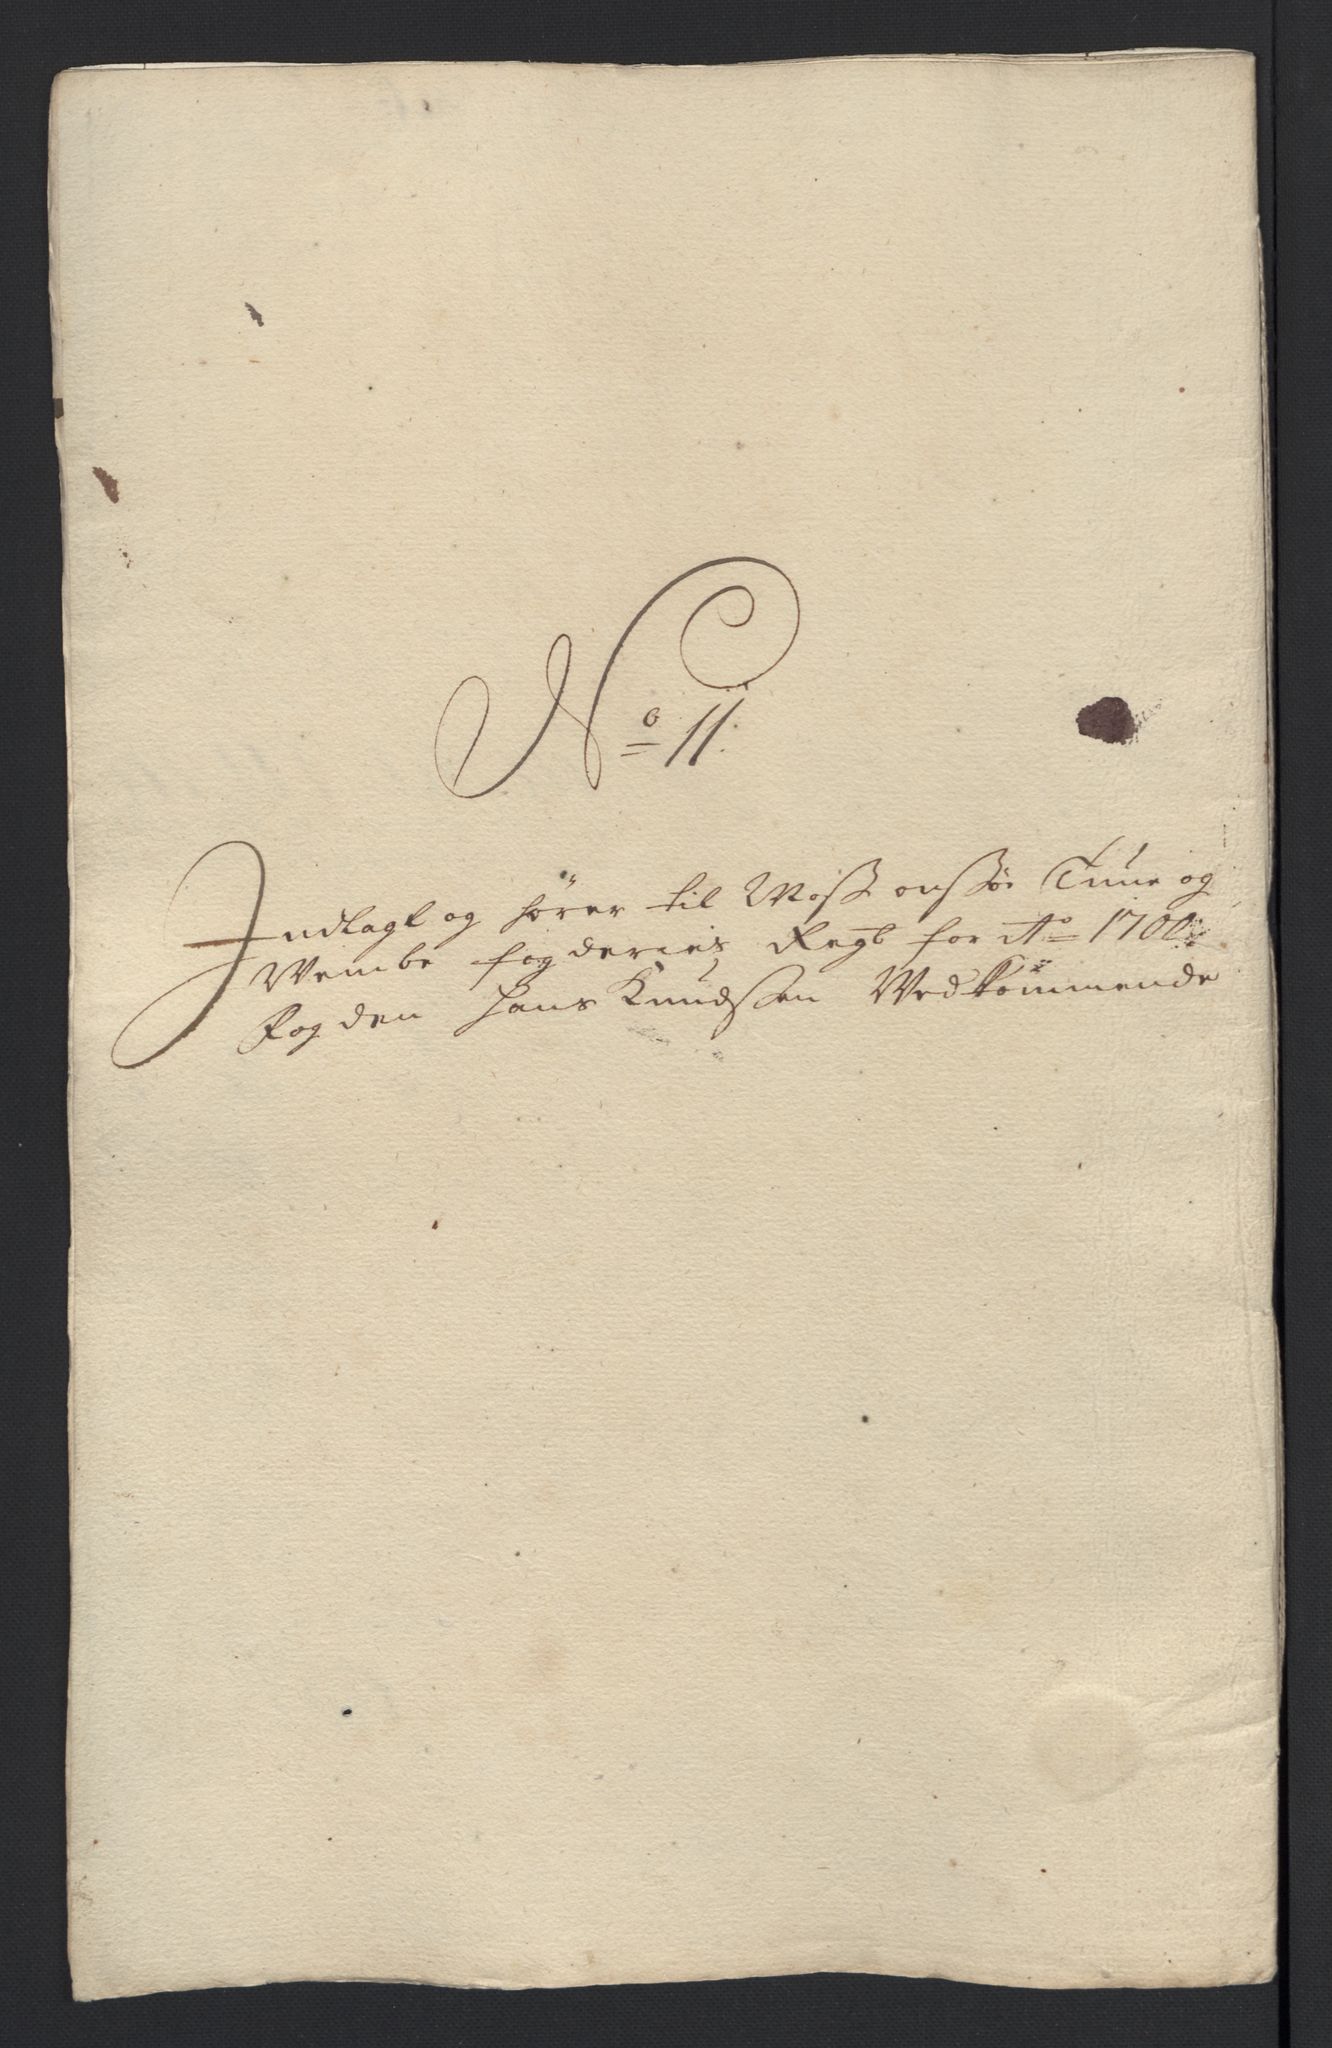 No 11.
Indlagt og hörer til Moss onssöe Tune og
Wembe fogderies Regb for Ao 1700
Fogden Hans Knudssen Vedkommende